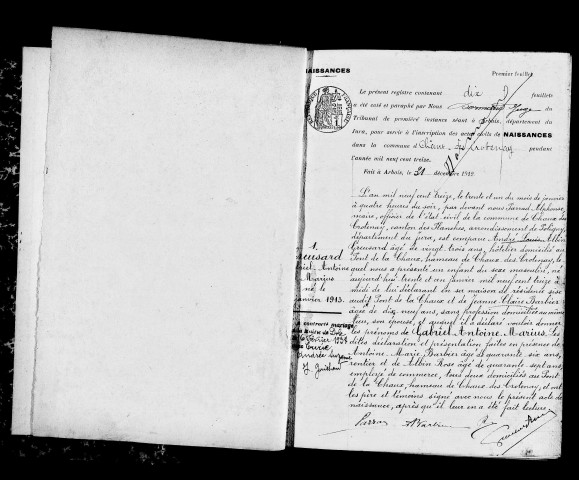 NAISSANCES
Premier feuillet
Le présent registre contenant dix feuillets
a été coté et paraphé par Nous Juge du
Tribunal de première instance séant à Arbois, département du
Jura, pour servir à l'inscription des actes de NAISSANCES
dans la commune d Chaux-des-Crotenay pendant
l'année mil neuf cent treize.
Fait à Arbois, le 21 décembre 1912.
L'an mil neuf cent treize, le trente et un du mois de janvier
à quatre heures du soir, par devant nous Alphonse
maire, officier de l'état civil de la commune de Chaux des
Crotenay, canton des Planches, arrondissement de Poligny,
département du jura, est comparu André Louis Albin
âgé de vingt trois ans, hôtelier domicilié au
Pont de la Chaux, hameau de Chaux des Crotenay, le
quel nous a présenté un enfant du sexe masculin, né
aujourd'hui trente et un janvier mil neuf cent treize à
midi de lui déclarant en sa maison de résidence sise
audit Pont de la Chaux et de Jeanne Claire Barbier
âgée de dix neuf ans, sans profession domiciliée au même
lieu, son épouse, et auquel il a déclaré vouloir donner
les prénoms de Gabriel Antoine Marius. Les
dites déclaration et présentation faites en présence de
Antoine Marie Barbier âgé de quarante six ans,
rentier et de Albin Rose âgé de quarante sept ans,
employé de commerce, tous deux domiciliés au Pont
de la Chaux, hameau de Chaux des Crotenay, et ont
les père et témoins signé avec nous le présent acte de
naissance, après qu'il leur en a été fait lecture.
1.
Antoine
Marius
né le
janvier 1913.
A contracté mariage
1938